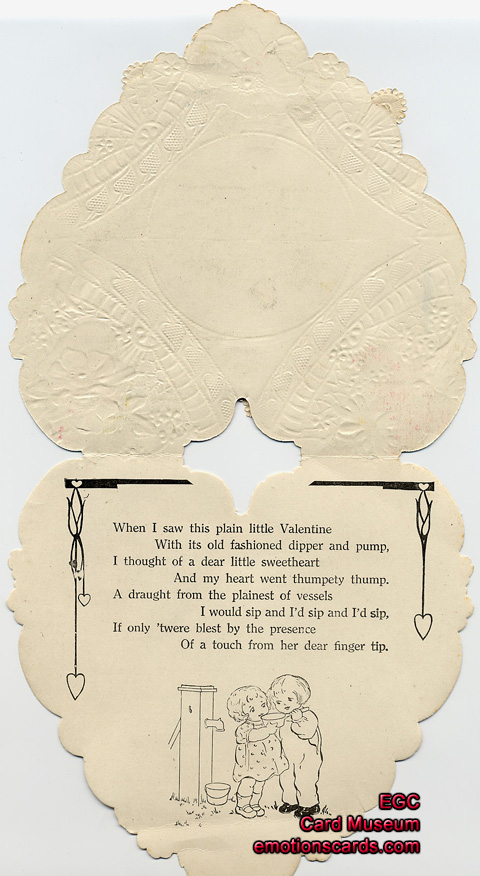 When I saw this plain little Valentine
With its old fashioned dipper and pump,
I thought of a dear little sweetheart
And my heart went thumpety thump.
A draught from the plainest of vessels
I would sip and I'd sip and I'd sip,
If only 'twere blest by the presence
Of a touch from her dear finger tip.
EGC
Card Museum
emotionscards.com